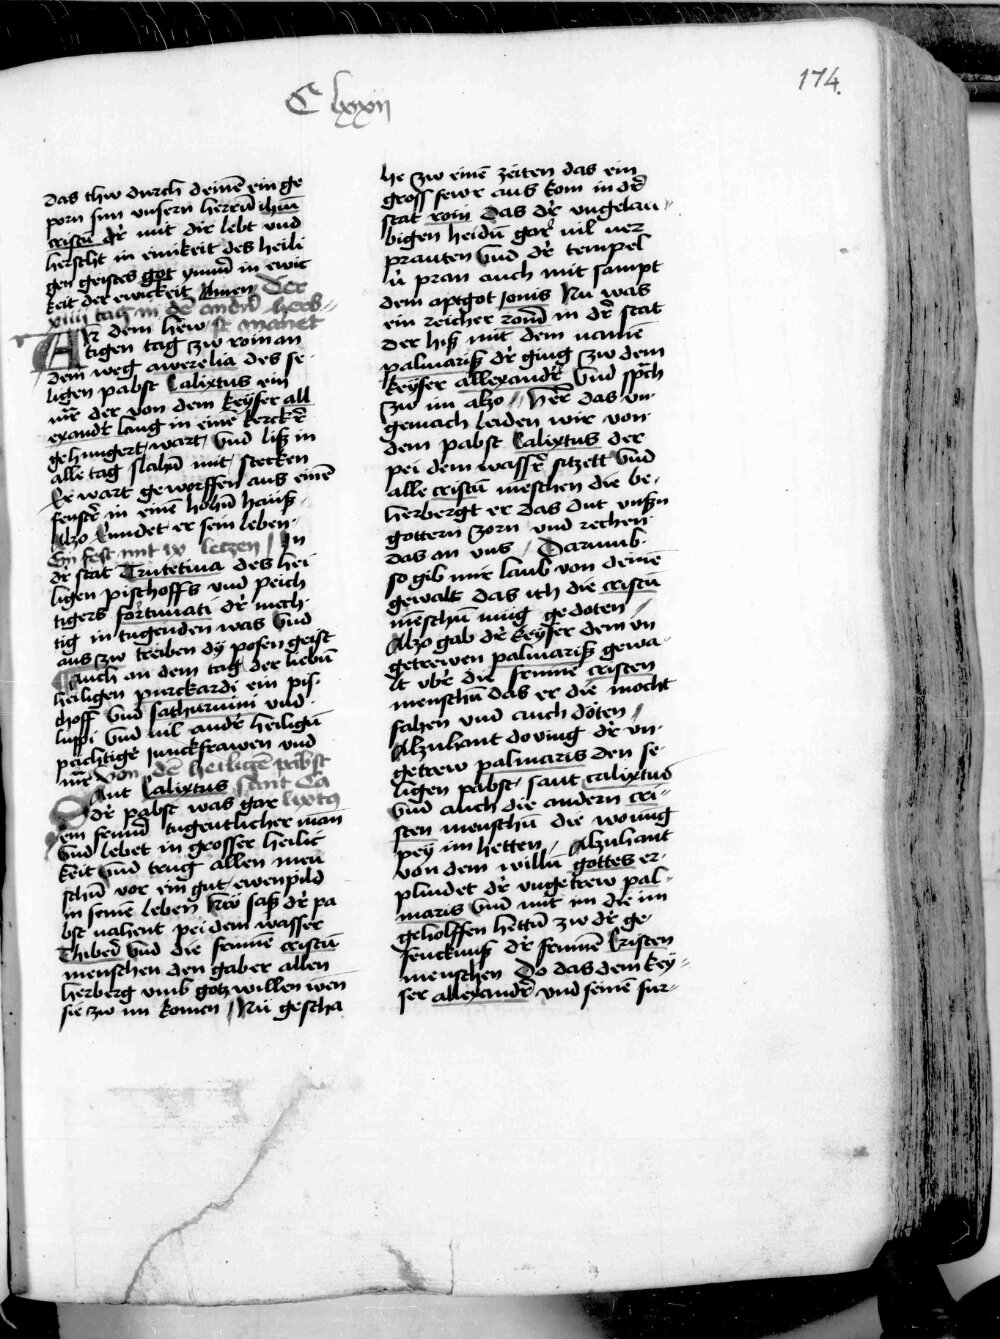 C lxxij
174.
das thw durch deinē ein ge
porn sun vnsern herrn̄ ihm̄
cristū dr̄ mit dir lebt vnd
herscht in einikeit des heili
gen geistes got ymm̄ in ewic
keit der ewickeit Amen Der
xiiij tag in dē andn̄ herb-
An dem hew st manet
tigen tag zw rom an
dem weg awrelia des se-
ligen pabst Calixtus ein
mr̄ der von dem keyser all
exandr̄ lang in einē kerckr̄
gehungert wart / vnd liß in
alle tag slahn̄ mit stecken
Er wart geworffen aus einē
fenstr̄ in einē hohn̄ hauß-
Alzo kundet er sein leben-
Ein fest mit ix letzen / In
dr̄ stat Trutetina des hei
ligen pischoffs vnd peich
tigers fortunati dr̄ mech-
tig in tugenden was vnd
aus zw treiben dy posen geist
Auch an dem tag der liebn̄
heiligen purckardi ein pis-
choff vnd sathurnini vnd
luppi vnd vil andr̄ heilign̄
pachtiger junckfrawen vnd
mr̄ von dē heiligē pabst
Sant Calixtus sant Ca
dr̄ pabst was gar lixtq
ein frund tugentlicher man
vnd lebet in grosser heilic
keit vnd trug allen men
schn̄ vor ein gut ewenpild
in seinē leben Nw saß dr̄ pa
bst nahent pei dem wasser
Thiber̄ vnd die frunde cristn̄
menschen den gab er allen
herberg vmb gotz willen wen
sie zw im komen / Nu gescha
he zw einē zeiten das ein
gross fewr aus kom in dr̄
stat rom Das dr̄ vngelau-
bigen heidn̄ gar vil ver
pranten vnd dr̄ tempel
v̄ pran auch mit sampt
dem aptgot Jouis Nu was
ein reicher romr̄ in dr̄ stat
der hiß mit dem namē
palmariß dr̄ ging zw dem
keyser allexandr̄ vnd spch
zw im alzo // Her̄ das vn-
gemach leiden wir von
dem pabst Calixtus der
pei dem wassr̄ sitzett vnd
alle cristn̄ meschen die be-
herbergt er das dut vnßn
gottern zorn vnd rechen
das an vns / Darumb
so gib mir laub von deinē
gewalt das ich die cristn̄
menschn̄ mug gedoten //
Alzo gab dr̄ keyser dem vn
getrewen palmariß gewa-
lt vbr̄ die frunde cristen
menschn̄ das er die mocht
fahen vnd auch döten //
Alzuhant do ving dr̄ vn-
getrew palmaris den se-
ligen pabst sant calixtus
vnd auch die andern cri-
sten menschn̄ die wonung
pey im hetten / Alzuhant
von dem willn̄ gottes er-
plindet dr̄ vngetrew pal-
maris vnd mit im die im
geholffen hettn̄ zw dr̄ ge
fencknuß dr̄ frunnē Cristen
menschen Do das dem key-
ser allexandr̄ vnd seinē fur-